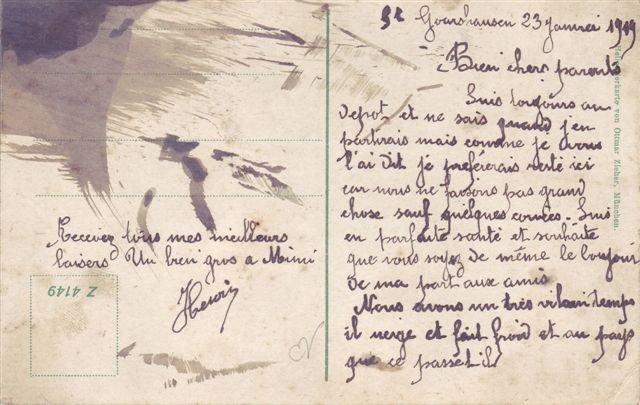 St Goarshausen 23 janvier 1919
Bien chers parents
Suis toujours au
depot et ne sais quand j'en
partirais mais comme je vous
l'ai dit je prefererais resté ici
car nous ne faisons pas grand
chose sauf quelques corvées. Suis
en parfaite santé et souhaite
que vous soyez de même le bonjour
de ma part aux amis
Nous avons un très vilain temps
il neige et fait froid et au pays
que ce passe t il
Recevez tous mes meilleurs
baisers Un bien gros a Mimi
Henri
Z 4149
karte von Ottmar Zieher, München.